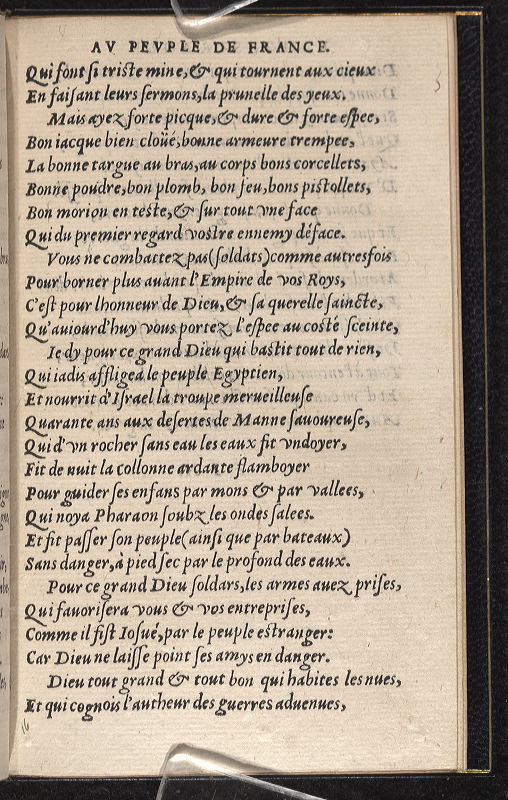 AV PEVPLE DE FRANCE.
Qui font si triste mine, & qui tournent aux cieux
En faisant leurs sermons, la prunelle des yeux.
Mais ayez forte picque, & dure & forte espee,
Bon iacque bien cloüé, bonne armeure trempee,
La bonne targue au bras, au corps bons corcellets,
Bonne poudre, bon plomb, bon feu, bons pistollets,
Bon morion en teste, & sur tout vne face
Qui du premier regard vostre ennemy déface.
Vous ne combattez pas (soldats) comme autresfois
Pour borner plus auant l'Empire de vos Roys,
C'est pour lhonneur de Dieu, & sa querelle saincte,
Qu'auiourd'huy vous portez l'espee au costé sceinte,
Ie dy pour ce grand Dieu qui bastit tout de rien,
Qui iadis affligea le peuple Egyptien,
Et nourrit d'Israel la troupe merueilleuse
Quarante ans aux desertes de Manne sauoureuse,
Qui d'vn rocher sans eau les eaux fit vndoyer,
Fit de nuit la collonne ardante flamboyer
Pour guider ses enfans par mons & par vallees,
Qui noya Pharaon soubz les ondes salees.
Et fit passer son peuple (ainsi que par bateaux)
Sans danger, à pied sec par le profond des eaux.
Pour ce grand Dieu soldars, les armes auez prises,
Qui fauorisera vous & vos entreprises,
Comme il fist Iosué, par le peuple estranger:
Car Dieu ne laisse point ses amys en danger.
Dieu tout grand & tout bon qui habites les nues,
Et qui cognois l'autheur des guerres aduenues,